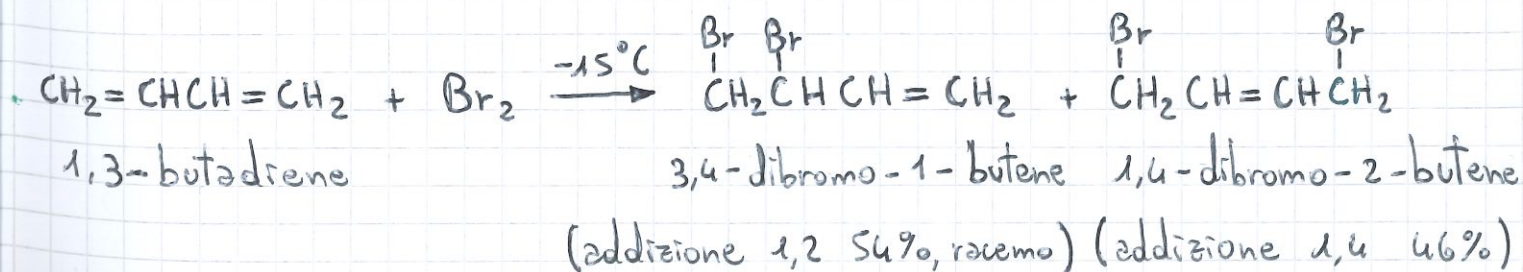 Br Br Br Br
CH₂ = CHCH = CH₂ + Br₂ -15°C CH₂CHCH = CH₂ + CH₂CH = CHCH₂
1,3-butadiene 3,4-dibromo-1-butene 1,4-dibromo-2-butene
(addizione 1,2 54%, racemo) (addizione 1,4 46%)